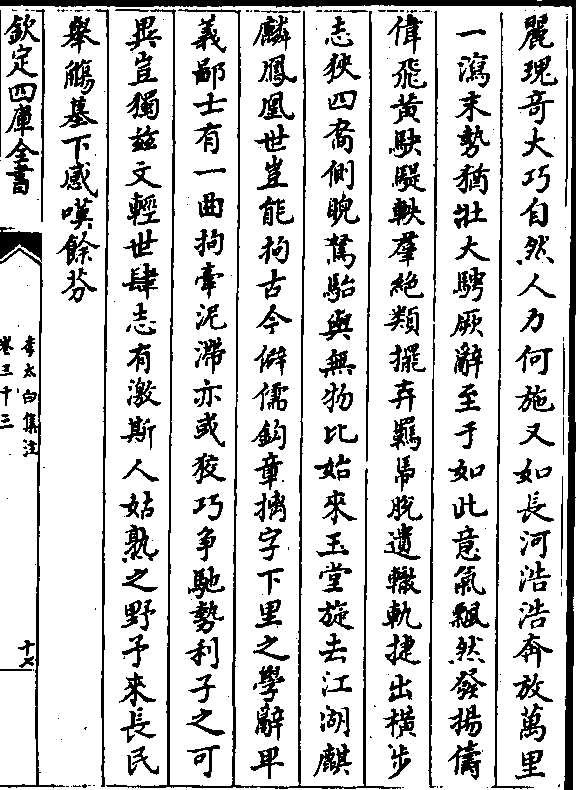 麗瑰奇大巧自然人力何施又如長河浩浩奔放萬里
一瀉末勢猶壯大騁厥辭至于如此意氣飄然發揚儔
偉飛黃駃騠軼羣絶類擺弃羈馽脫遺轍軌捷出橫步
志狹四裔側睨駑駘與無物比始來玉堂旋去江湖麒
麟鳳凰世豈能拘古今僻儒鈎章摘字下里之學辭卑
義鄙士有一曲拘牽泥滯亦或狡巧争馳勢利子之可
異豈獨兹文輕世肆志有激斯人姑熟之野予來長民
舉觴墓下感嘆餘芬
欽定四庫全書
李太白集注
卷三十三
十七